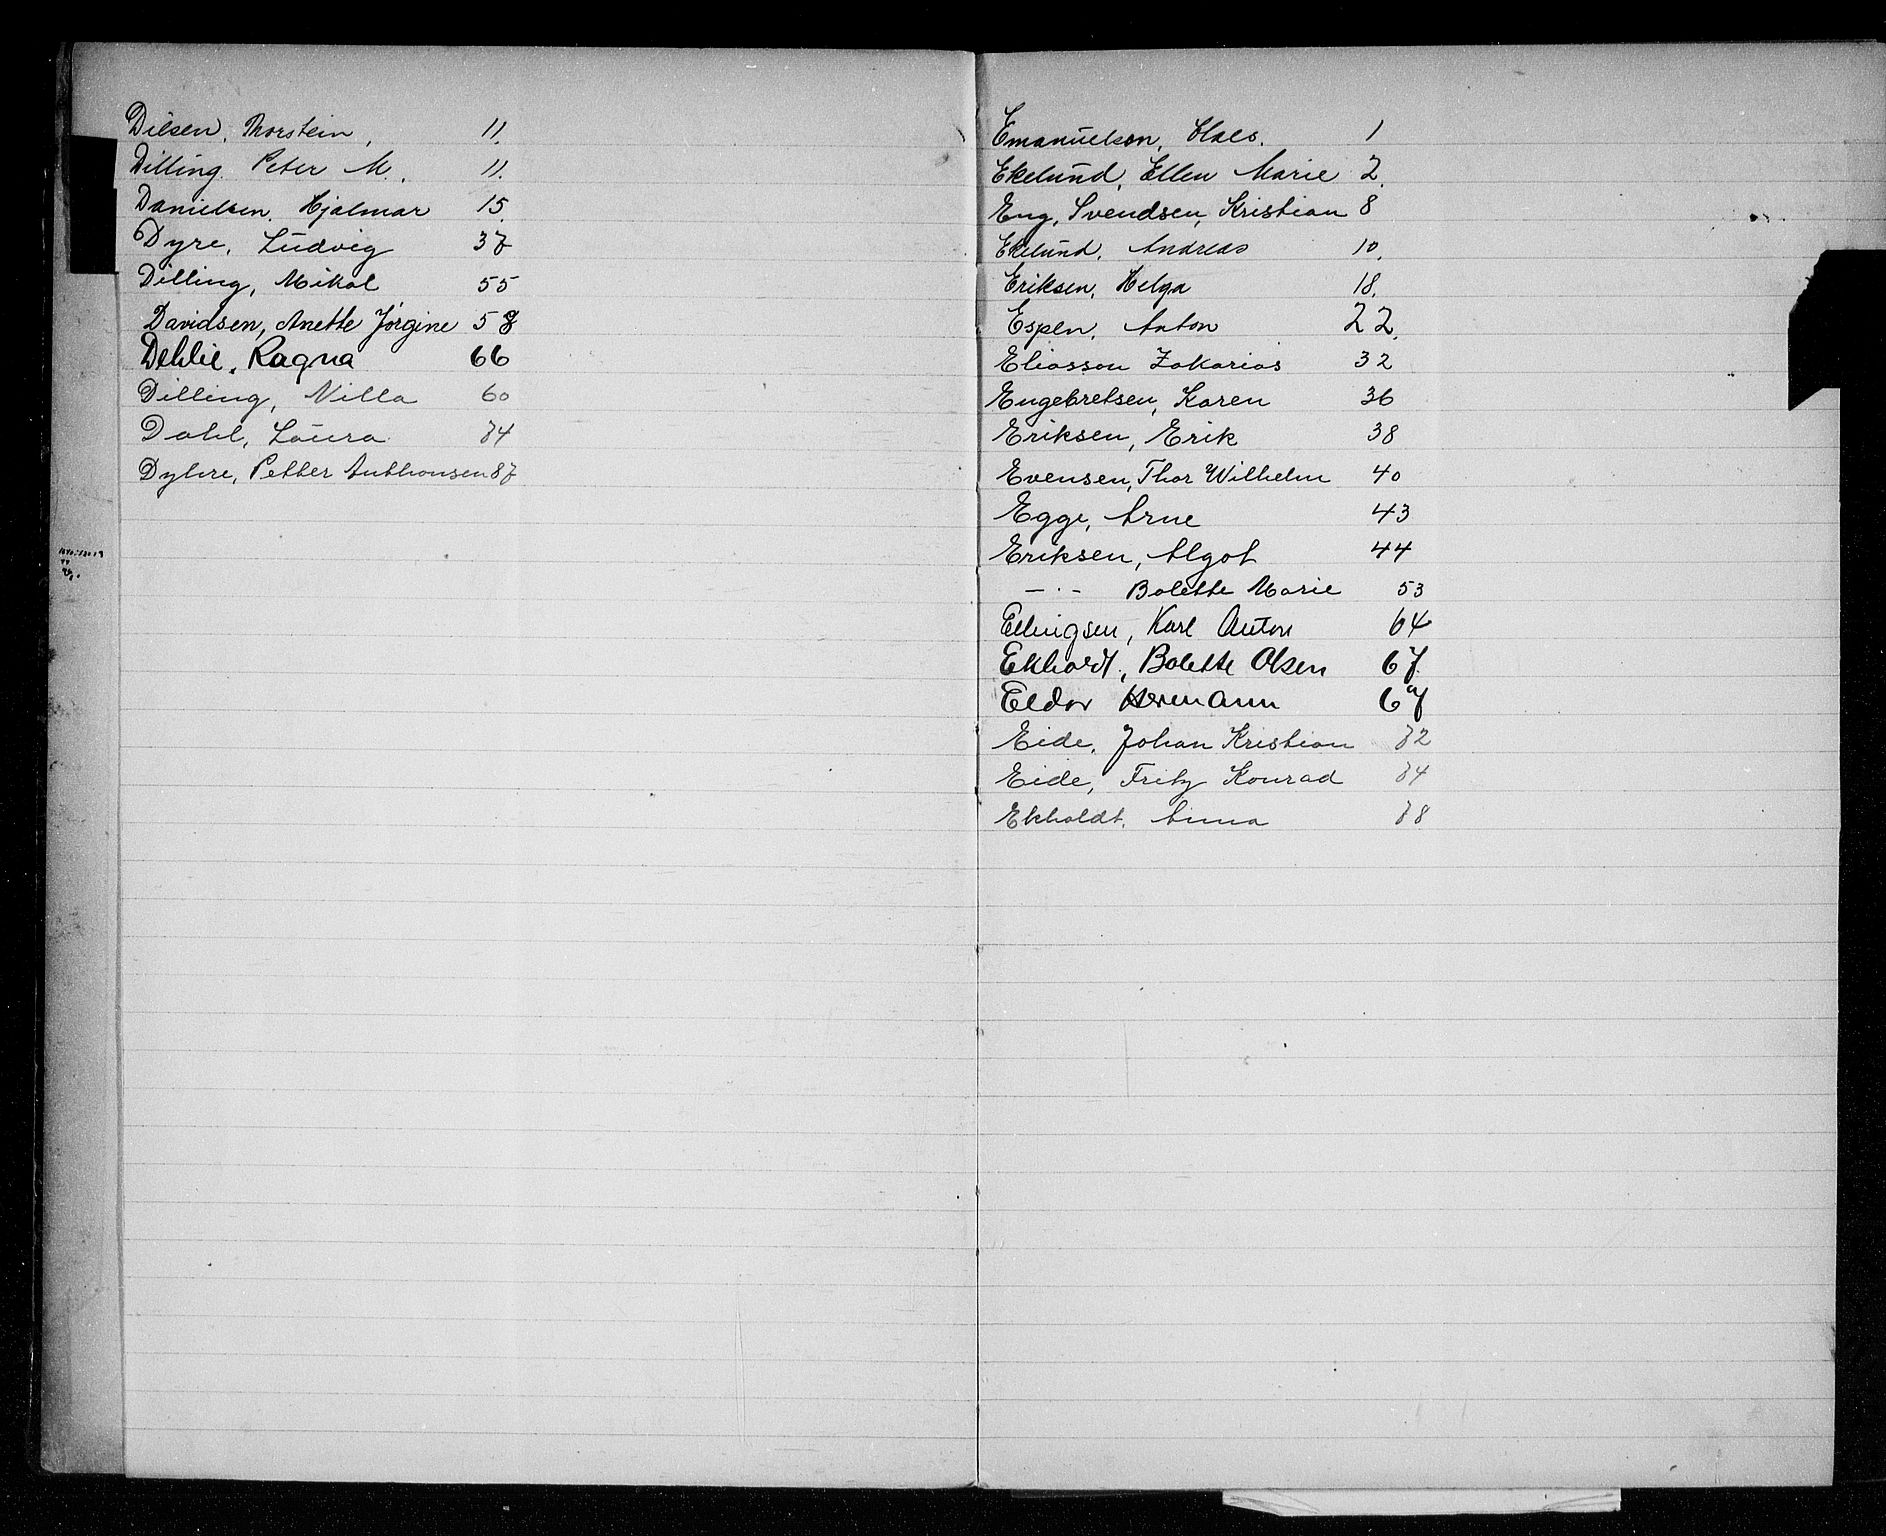 Dilsen, Thorstein, 11.
Dilling Peter M. 11.
Danielsen, Hjalmar 15.
Dyre, Ludvig 37
Dilling, Mikal 55
Davidsen, Anette Jørgine 58
Dehlie, Ragna 66
Dilling, Villa 60
Dahl, Laura 74
Dyhre, Petter Anthonsen 87
Emanuelson, Claes. 1
Ekelund, Ellen Marie 2.
Eng, Svendsen, Kristian 8
Ekelund, Andreas 10.
Eriksen, Helga 18.
Espen, Anton 22.
Eliasson Zakarias 32
Engebretsen, Karen 36
Eriksen, Erik 38
Evensen, Thor Wilhelm 40
Egge, Arne 43
Eriksen, Algot 44
— · - Bolette Marie 53
Ellingsen, Karl Anton 64
Ekhardt, Bolette Olsen 67.
Eldor Hermann 67
Eide, Johan Kristian 72
Eide, Fritz Konrad 74
Ekholdt, Anna 78